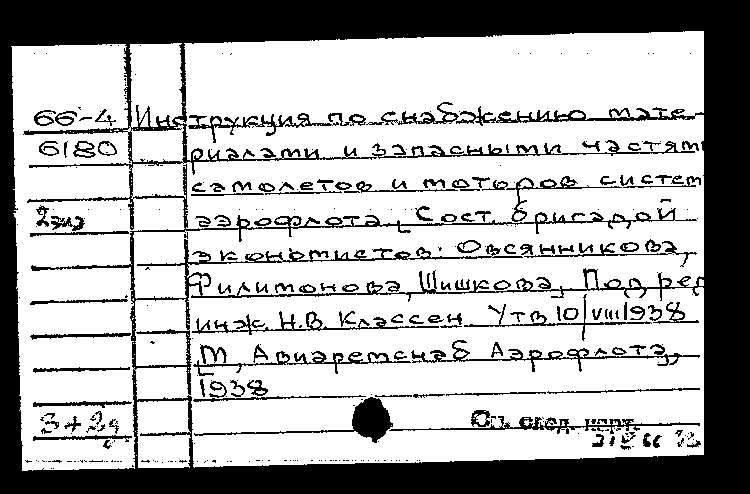 66-4 Инструкция по снабжению мате-
6180 риалами и запасными частями
самолетов и моторов систем
2экз аэрофлота, Сост. бригадой
экономистов: Овсянникова,
Филимонова, Шишкова, Под ред
инж. Н.В. Классен Утв 10/VIII 1938
М, Авиаремснаб Аэрофлота,
1938
3+2д См. след. карт.